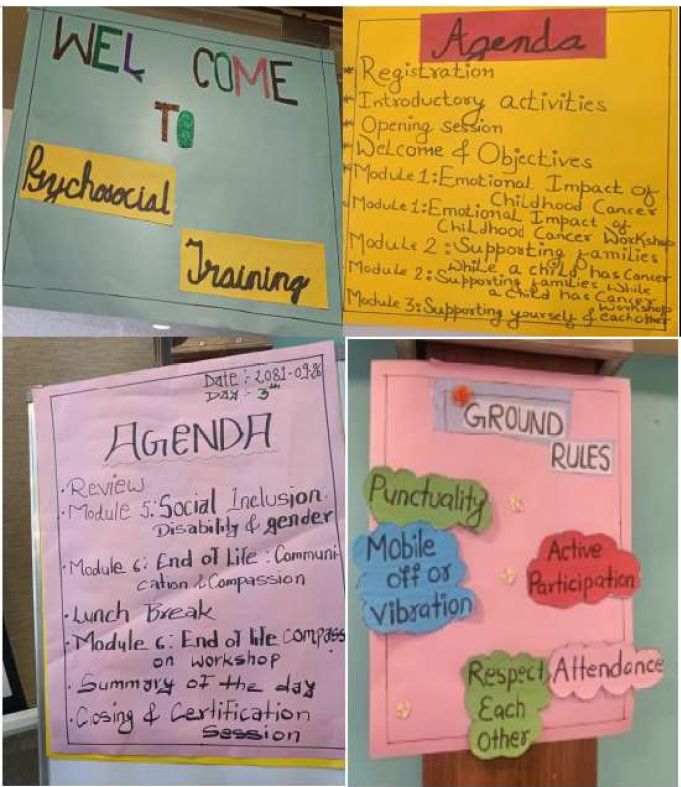 WEL COME
TO
Psychosocial
Training
Agenda
* Registration
* Introductory activities
* Opening session
* Welcome & Objectives
* Module 1: Emotional Impact of
Childhood Cancer
Module 1: Emotional Impact of
Childhood Cancer Workshop
Module 2: Supporting families
while a child has Cancer
Module 2: Supporting families while
a child has Cancer
Workshop
Module 3: Supporting yourself & eachother
Date :- 2081-09-26
DAY :- 3rth
AGENDA
· Review
· Module 5: Social Inclusion.
Disability & gender
· Module 6: End of Life : Communi-
cation & Compassion
· Lunch Break
· Module 6: End of life compass
on workshop
· Summary of the day
· Closing & Certification
Session
GROUND
RULES
Punctuality
Mobile
off or
Vibration
Active
Participation
Respect
Each
Other
Attendance